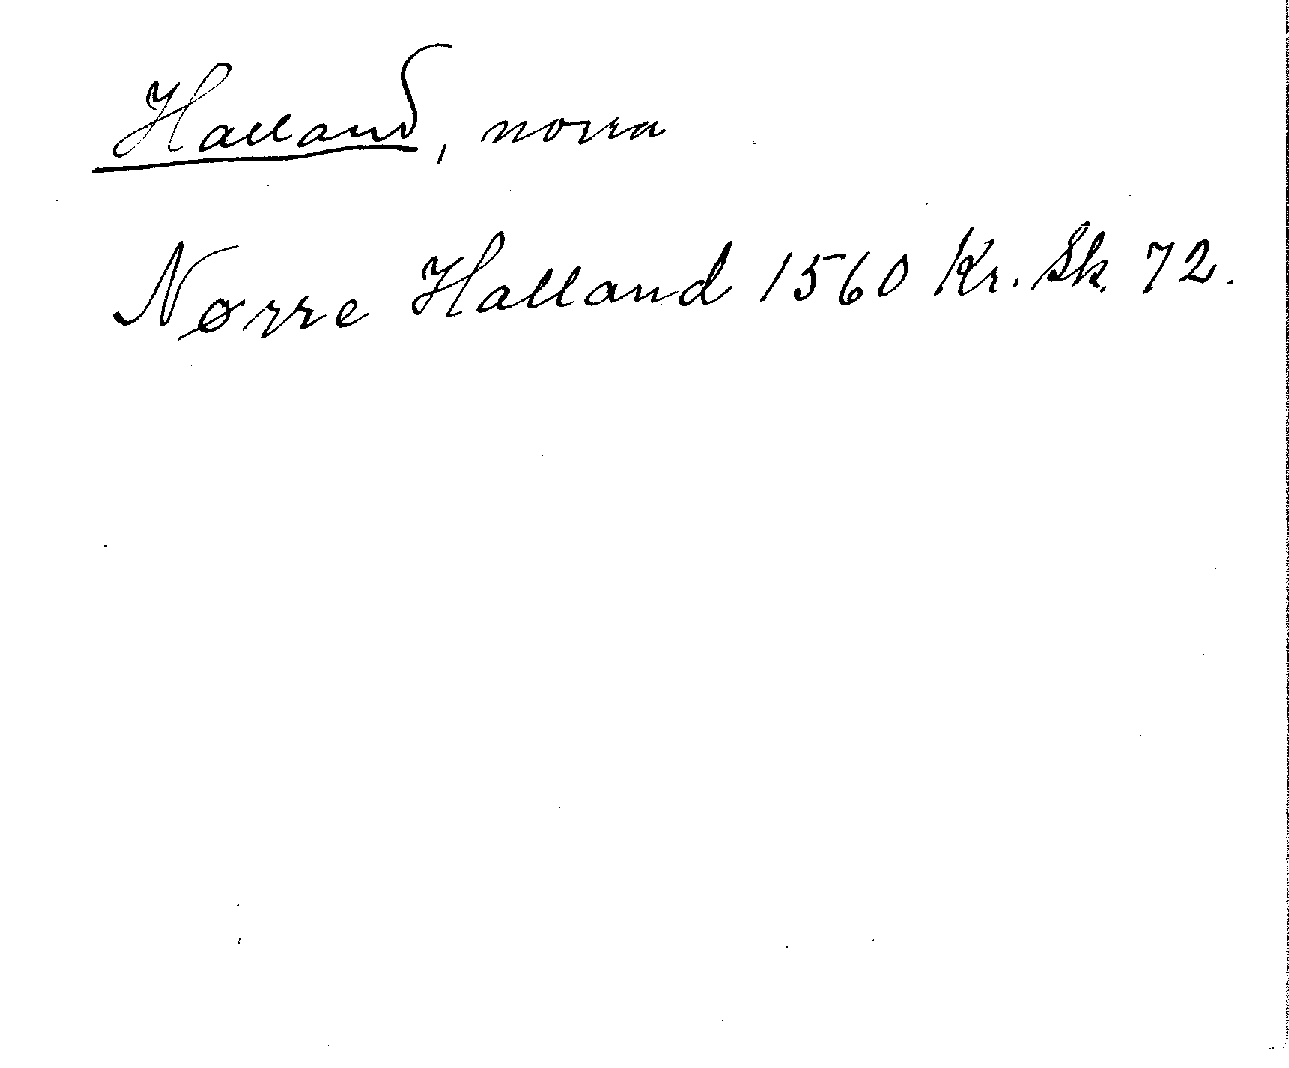 Halland, norra
Nørre Halland 1560 Kr. Sk. 72.